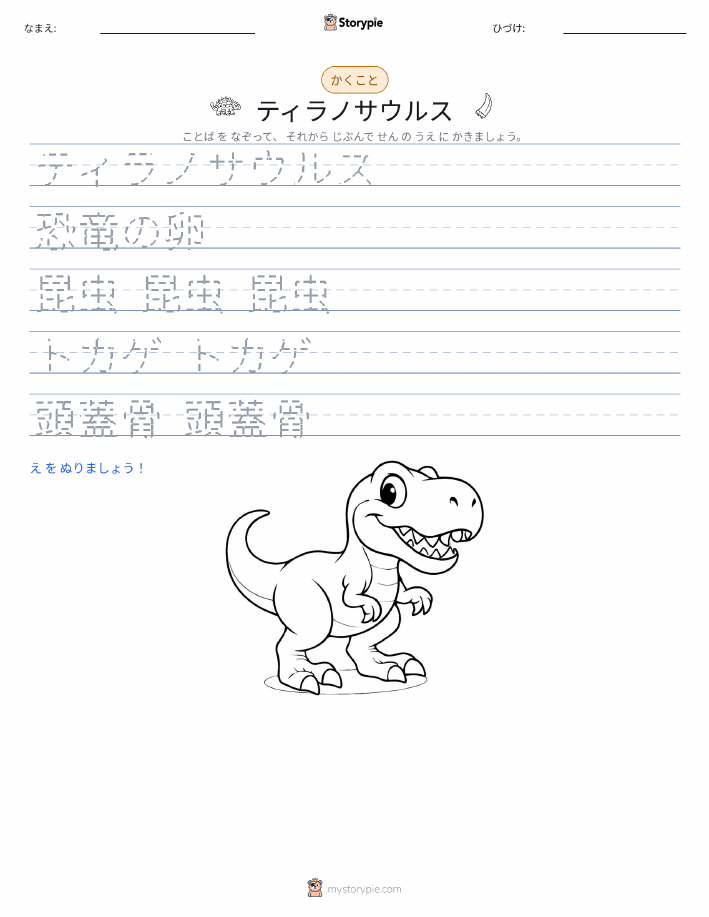 なまえ:
Storypie
ひづけ:
かくこと
ティラノサウルス
ことば を なぞって、 それから じぶんで せん の うえ に かきましょう。
ティラノサウルス
恐竜の卵
昆虫 昆虫 昆虫
トカゲ トカゲ
頭蓋骨 頭蓋骨
え を ぬりましょう！
mystorypie.com